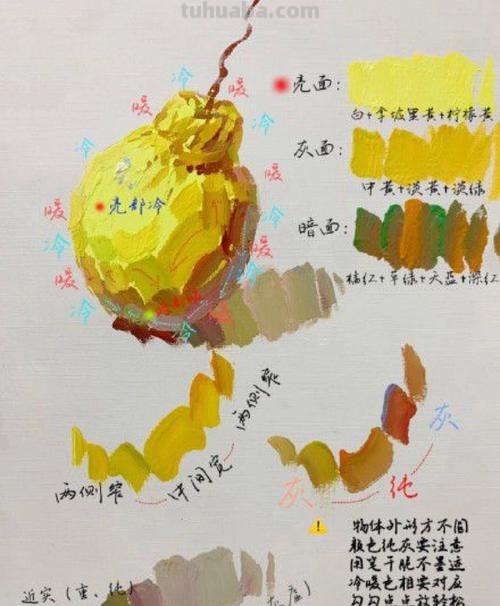 tuhuaba.com
冷
暖
暖
冷
冷
亮面：
白+拿坡里黄+柠檬黄
灰面：
中黄+淡黄+淡绿
暖
冷
暖
亮部冷
冷
暗面：
暖
暖
冷
冷
橘红+草绿+天蓝+深红
冷
两侧窄
中间宽
两侧窄
灰
灰
纯
物体外形方不圆
颜色纯灰要注意
用笔干脆不墨迹
冷暖色相要对应
近实（重、纯）